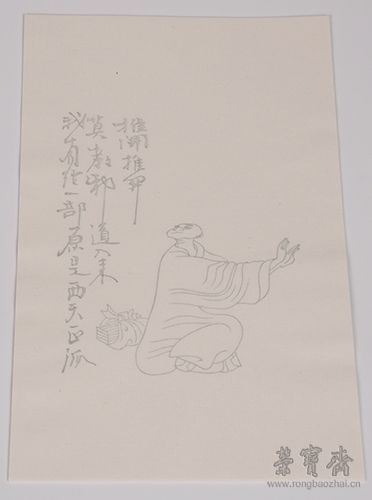 推開推開
莫教邪道入来
我有經一部原是西天正派
榮寶齋
www.rongbaozhai.cn